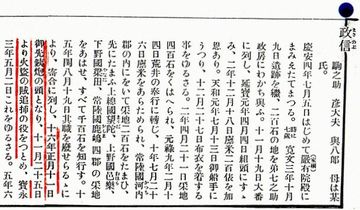 政信 まさのぶ
駒之助 彦大夫 與八郎 母は某氏。
慶安四年七月五日はじめて嚴有院殿に
まみえたてまつる。寛文三年十月
九日遺跡を繼、二百石の地を弟七之助
政房にわかち與ふ。十一月十九日大番
に列し、延寶元年四月四日組頭にすゝ
み、二年十二月十八日廩米二百俵を加
恩あり。天和元年六月三日御船手に
うつり、十二月二十七日布衣を着する
ことをゆるさる。二年四月二十一日采地
四百石をくはへられ、元祿九年二月十
四日荒井の奉行に轉じ、十年七月二十
六日廩米をあらためられ、常陸國河内
郡の内にをいて采地二百石をたまひ、
先にたまふ上總國望陀、上野國邑樂、
下野國梁田、常陸國鹿嶋四郡の采地
をあはせ、すべて千百石を知行す。十
五年閏八月十九日其職を廢せらるゝに
より、寄合に列し、十六年正月十一日
御先鐵炮の頭となり、十一月二十五日
より火盜の賊追捕の役をつとめ、寶永
三年五月二日これをゆるさる。五年六